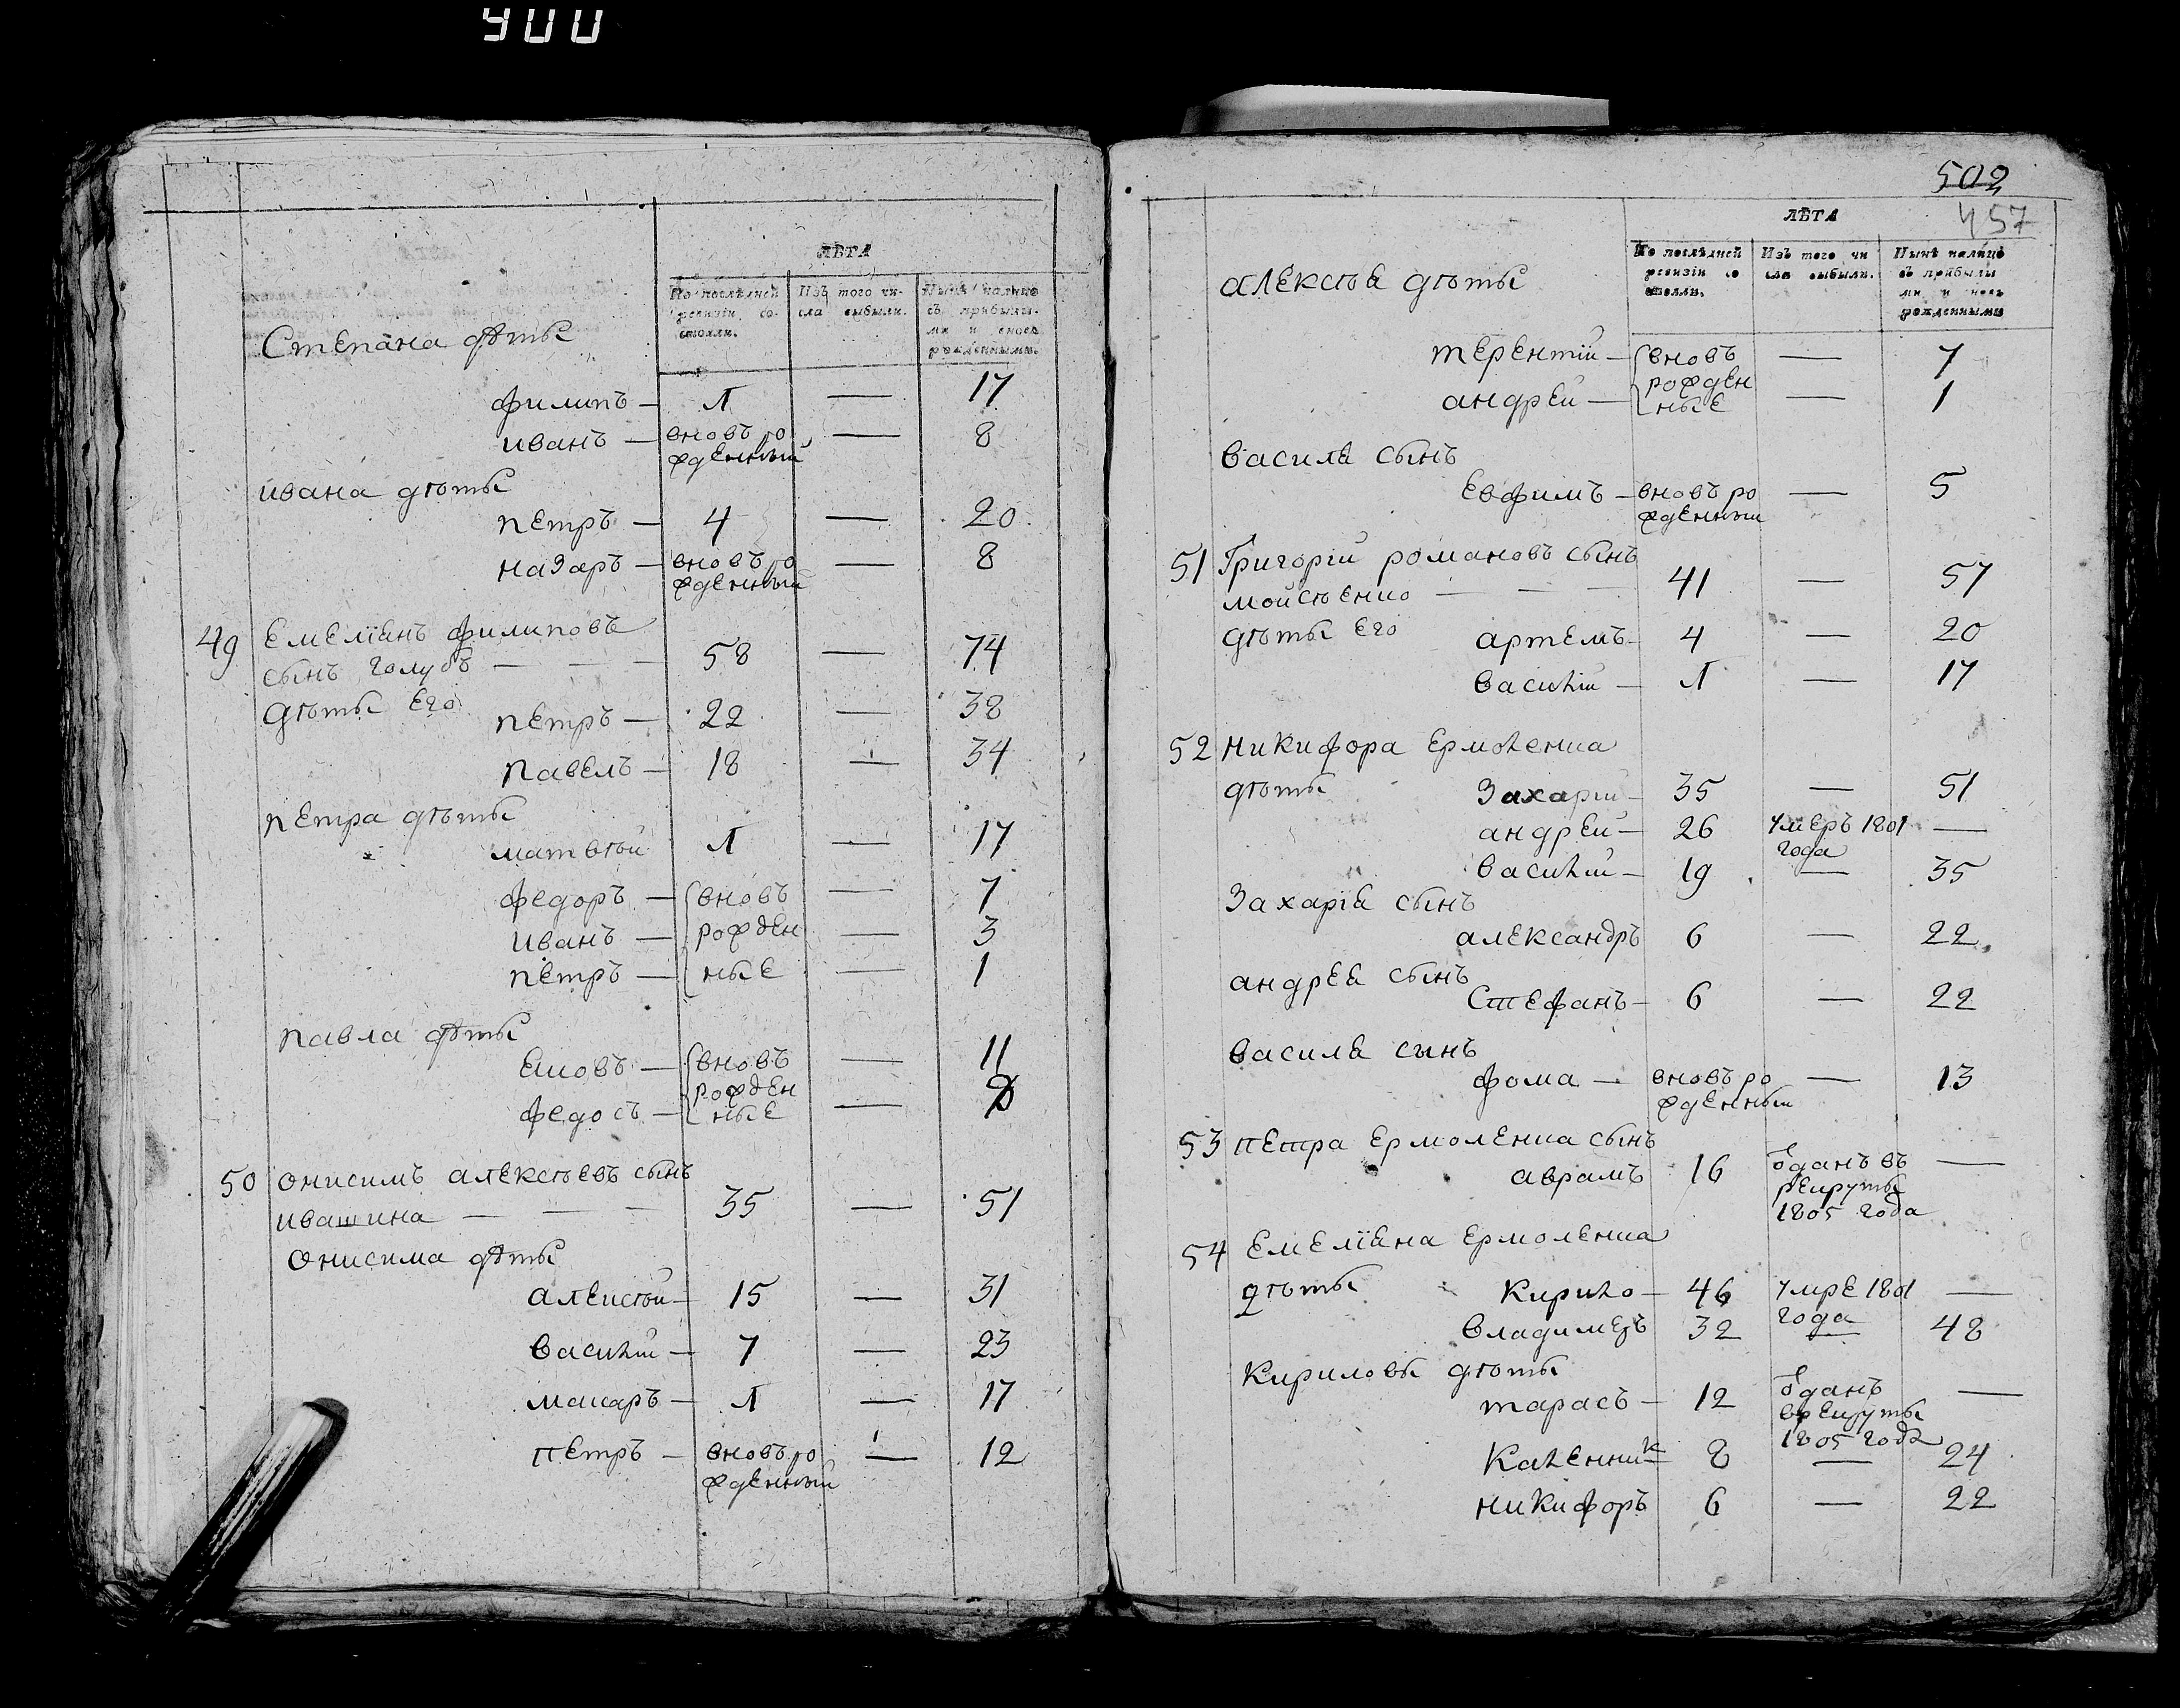 900
ЛѢТА
По послѣдней ревизіи состояли.
Изъ того числа выбыли.
Нынѣ налицо съ прибылыми и вновь рожденными.
Степана дѣты
филипъ — 1 — 17
иванъ — вновь рожденный — 8
ивана дѣты
петръ — 4 — 20
назаръ — вновь рожденный — 8
49 Емеліянъ филиповъ
сынъ голубъ — 58 — 74
дѣты Его
петръ — 22 — 38
павелъ — 18 — 34
петра дѣты
матвѣй 1 — 17
федоръ — вновь — 7
иванъ — рожден — 3
петръ — ные — 1
павла дѣты
вновь — 11
федосъ — рожденные —
50 онисимъ алексѣевъ сынъ
ивашина — 35 — 51
онисима дѣты
алексѣй — 15 — 31
василій — 7 — 23
макаръ — 1 — 17
петръ — вновь рожденный — 12
502
457
ЛѢТА
По послѣдней ревизіи состояли.
Изъ того числа выбыли.
Нынѣ налицо съ прибылыми и новорожденными
алексѣя дѣты
терентій — вновь — 7
андрей — рожденные — 1
василя сынъ
Евфимъ — вновь рожденный — 5
51 Григорій романовъ сынъ
мойсѣенко — 41 — 57
дѣты Его артемъ — 4 — 20
василій — 1 — 17
52 никифора Ермоленка
дѣты Захарій — 35 — 51
андрей — 26 умеръ 1801 года —
василій — 19 — 35
Захарія сынъ
александръ 6 — 22
андрея сынъ
Стефанъ — 6 — 22
василя сынъ
фома — вновь рожденный — 13
53 петра Ермоленка сынъ
аврамъ 16 ѿданъ въ рекруты 1805 года —
54 Емеліяна Ермоленка
дѣты Кирило — 46 умре 1801 года —
владимеръ 32 — 48
Кириловы дѣты
тарасъ — 12 ѿданъ в рекруты 1805 года —
Каленник — 8 — 24
никифоръ 6 — 22